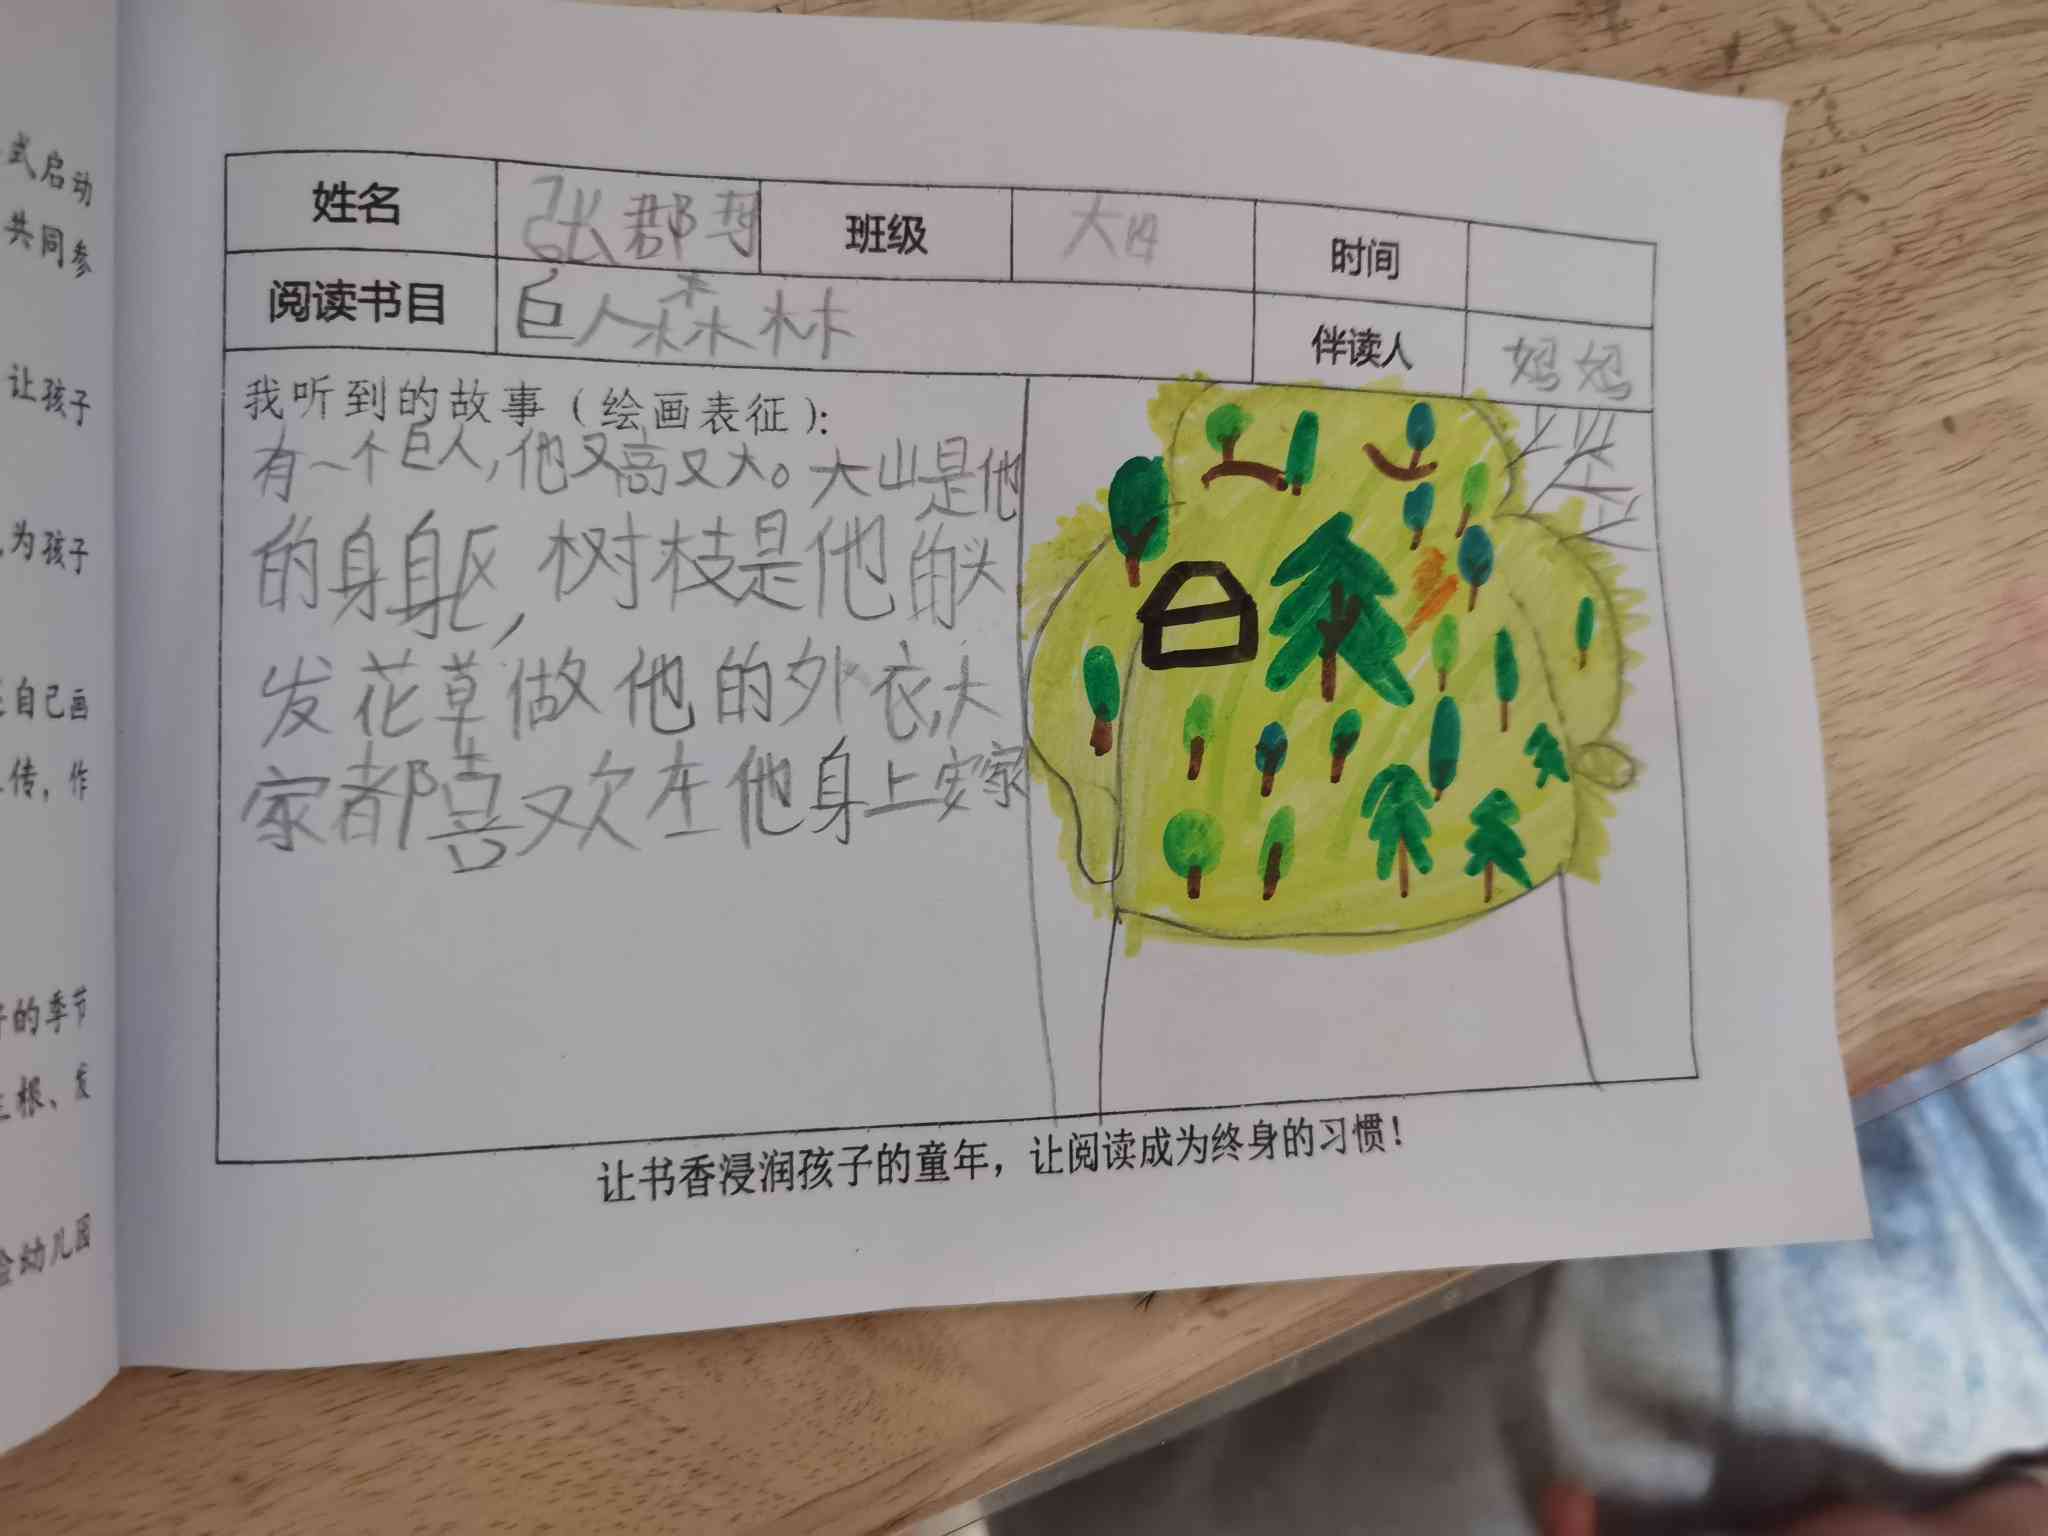 式启动
共同参
让孩子
为孩子
自己画
传，作
的季节
根、发
幼儿园
姓名 张郡 班级 大四 时间
阅读书目 巨人森林 伴读人 妈妈
我听到的故事（绘画表征）：
有一个巨人，他又高又大。大山是他
的身躯，树枝是他的头
发花草做他的外衣，大
家都喜欢在他身上安家
让书香浸润孩子的童年，让阅读成为终身的习惯！